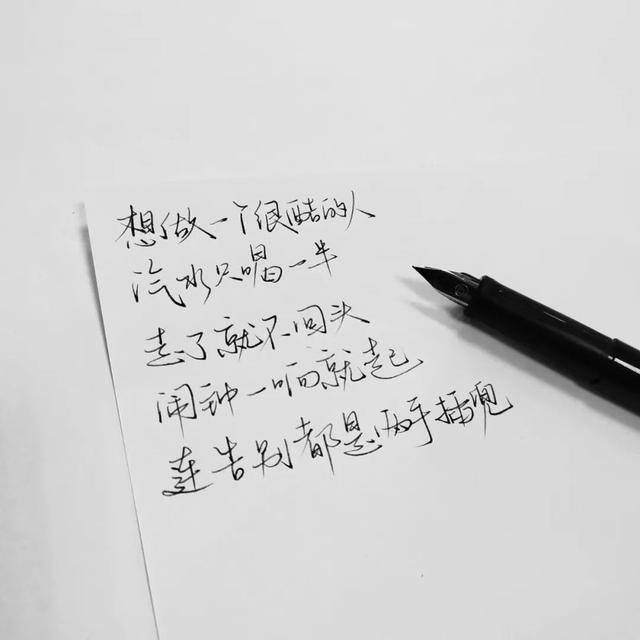 想做一个很酷的人
汽水只喝一半
走了就不回头
闹钟一响就起
连告别都是两手插兜